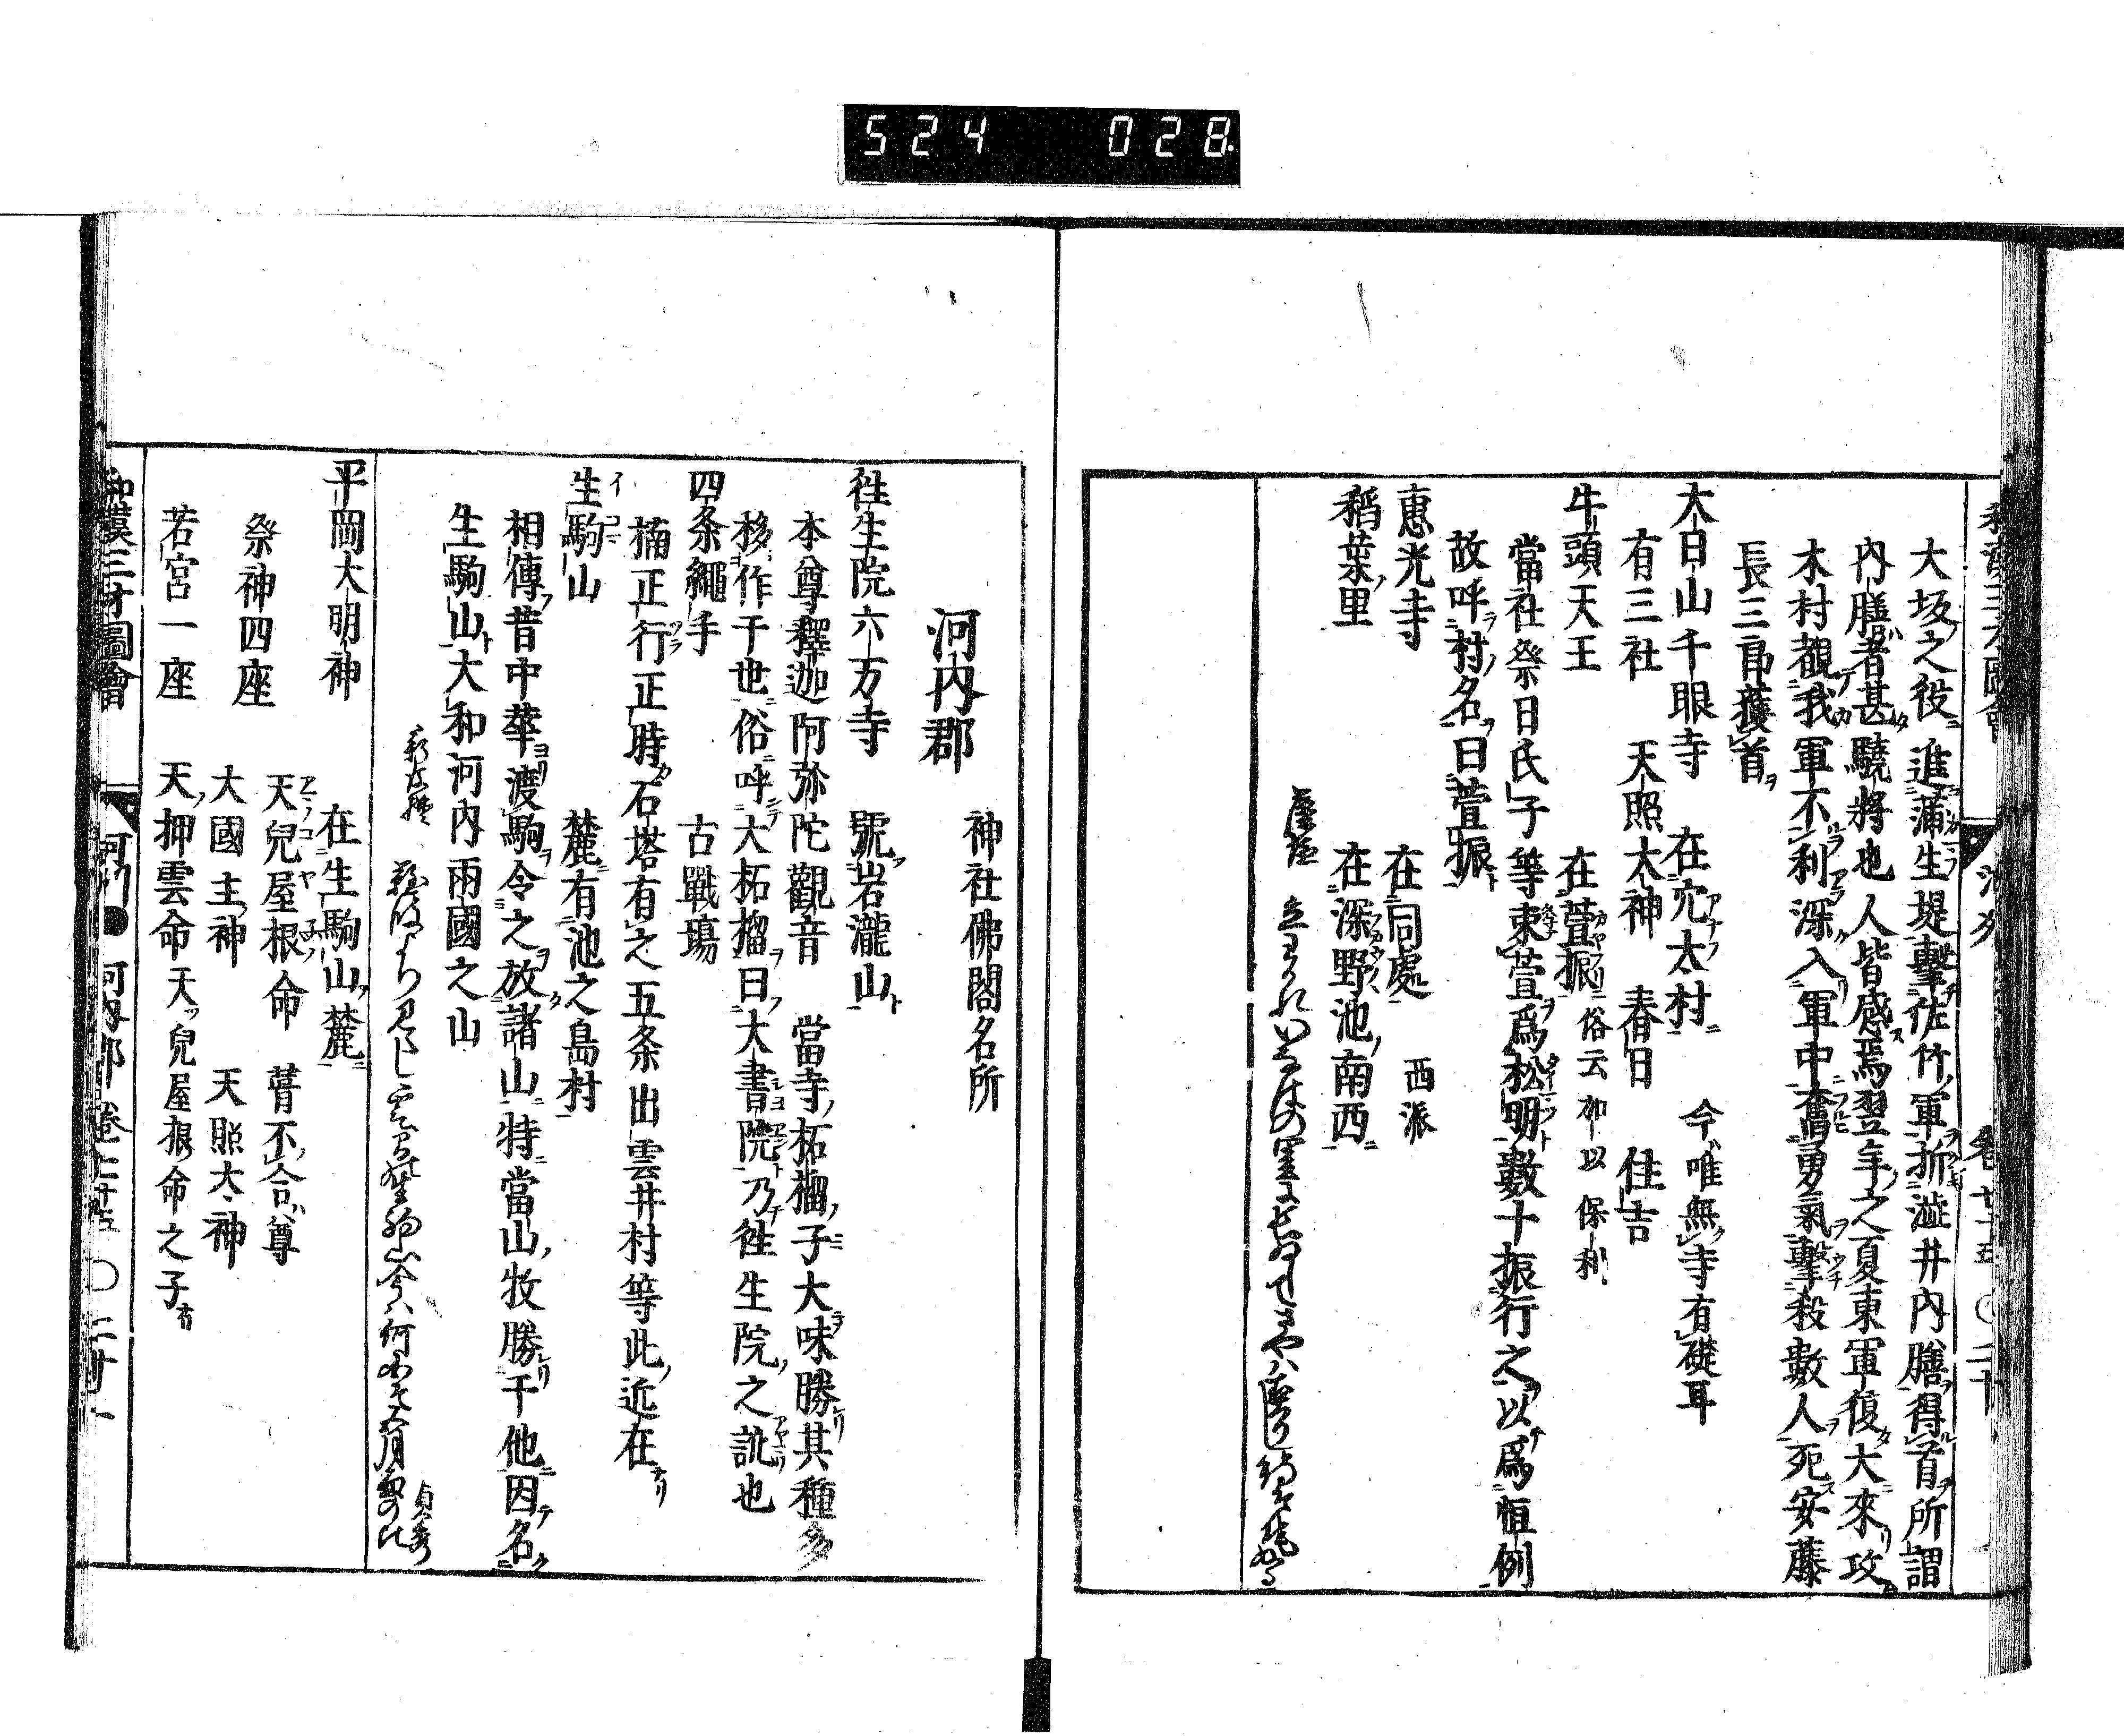 524 028
大坂之役進蒲生堤擊佐竹軍折澁井內膳得首所謂
內膳者甚驍將也人皆感焉翌年之夏東軍復大來攻
木村覩我軍不利深入軍中奮勇氣擊殺數人死安藤
長三郎獲首
大日山千眼寺 在穴太村 今唯無寺有礎耳
有三社 天照太神 春日 住吉
牛頭天王 在萱振 俗云加以保利
當社祭日氏子等束萱爲松明數十振行之以爲恒例
故呼村名曰萱振
惠光寺 在同處 西派
稻葉里 在深野池南西
河內郡 神社佛閣名所
徃生院六万寺 號岩瀧山
本尊釋迦阿弥陀觀音 當寺柘榴子大味勝其種多
移作于世俗呼大柘榴曰大書院乃徃生院之訛也
四条繩手 古戰塲
楠正行正時石塔有之五条出雲井村等此近在
生駒山 麓有池之島村
相傳昔中華渡駒令之放諸山特當山牧勝于他因名
生駒山大和河內兩國之山
貞秀
平岡大明神 在生駒山麓
祭神四座 天兒屋根命 葺不合尊
大國主神 天照太神
若宮一座 天押雲命天兒屋根命之子
和漢三才圖會 河內郡 卷七十五 ○二十一